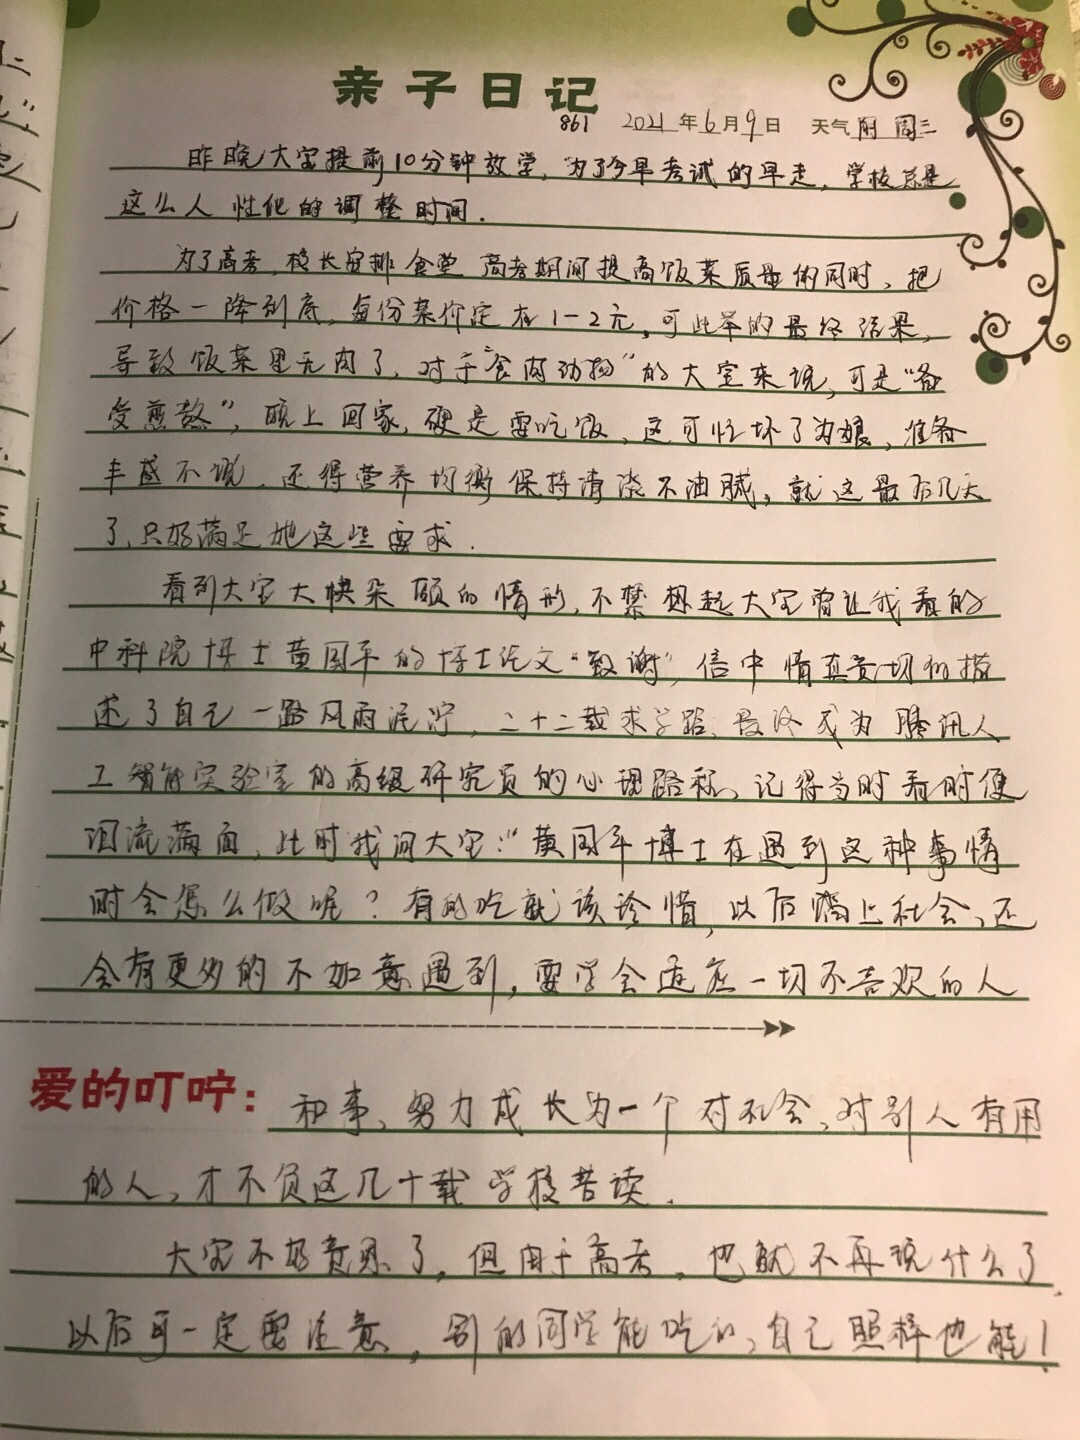 亲子日记
861 2021年6月9日 天气阴 周三
昨晚大宝提前10分钟放学，为了今早考试的早走，学校总是
这么人性化的调整时间．
为了高考，校长安排食堂高考期间提高饭菜质量的同时，把
价格一降到底，每份菜价定在1-2元，可此举的最终结果，
导致饭菜里无肉了，对于“食肉动物”的大宝来说，可是“备
受煎熬”，晚上回家，硬是要吃饭，这可忙坏了为娘，准备
丰盛不说，还得营养均衡保持清淡不油腻，就这最后几天
了，只好满足她这些要求．
看到大宝大快朵颐的情形，不禁想起大宝曾让我看的
中科院博士黄国平的博士论文“致谢”，信中情真意切的描
述了自己一路风雨泥泞，二十二载求学路，最终成为腾讯人
工智能实验室的高级研究员的心理路程，记得当时看时便
泪流满面，此时我问大宝：“黄国平博士在遇到这种事情
时会怎么做呢？有的吃就该珍惜，以后踏上社会，还
会有更多的不如意遇到，要学会适应一切不喜欢的人
爱的叮咛：
和事，努力成长为一个对社会、对别人有用
的人，才不负这几十载学校苦读．
大宝不好意思了，但由于高考，也就不再说什么了，
以后可一定要注意，别的同学能吃的，自己照样也能！